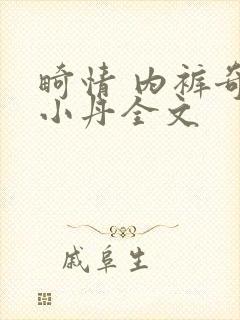 畸情 内裤奇
小丹全文
戚阜生